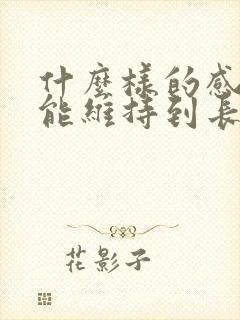 什麼樣的感
能維持到長
花影子